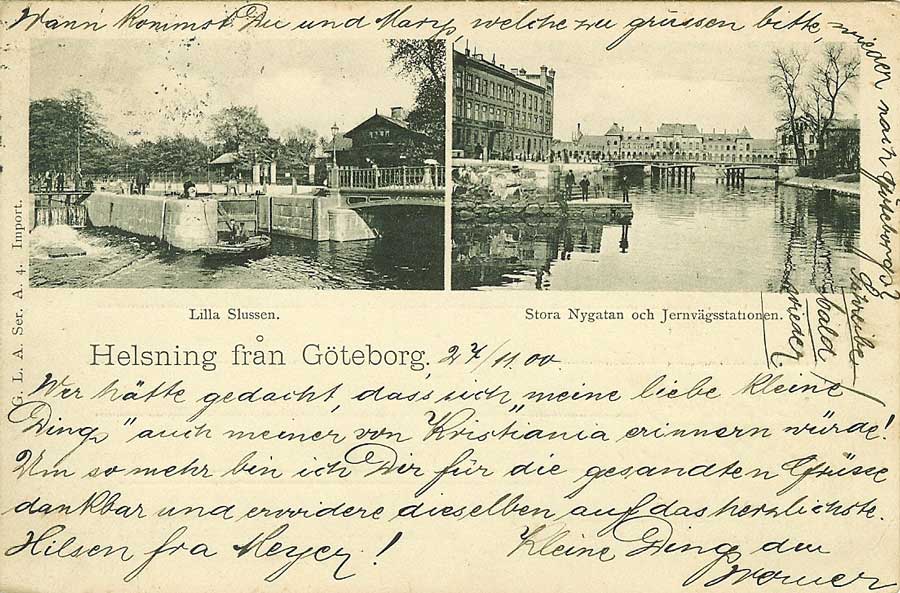 Wann kommst Du und Mary, welche zu grüssen bitte, wieder nach Göteborg?
Schreibe
bald
wieder
G. L. A. Ser. A. 4. Import.
Lilla Slussen.
Stora Nygatan och Jernvägsstationen.
Helsning från Göteborg, 27/11.00
Wer hätte gedacht, dass sich „meine liebe kleine
Dings" auch meiner von Kristiania erinnern würde!
Um so mehr bin ich Dir für die gesandten Grüsse
dankbar und erwidere dieselben auf das herzlichste.
Hilsen fra Meyer!
Kleine Dings den